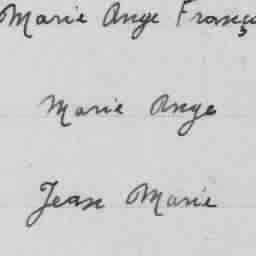 Marie Ange Franço
Marie Ange
Jean Marie